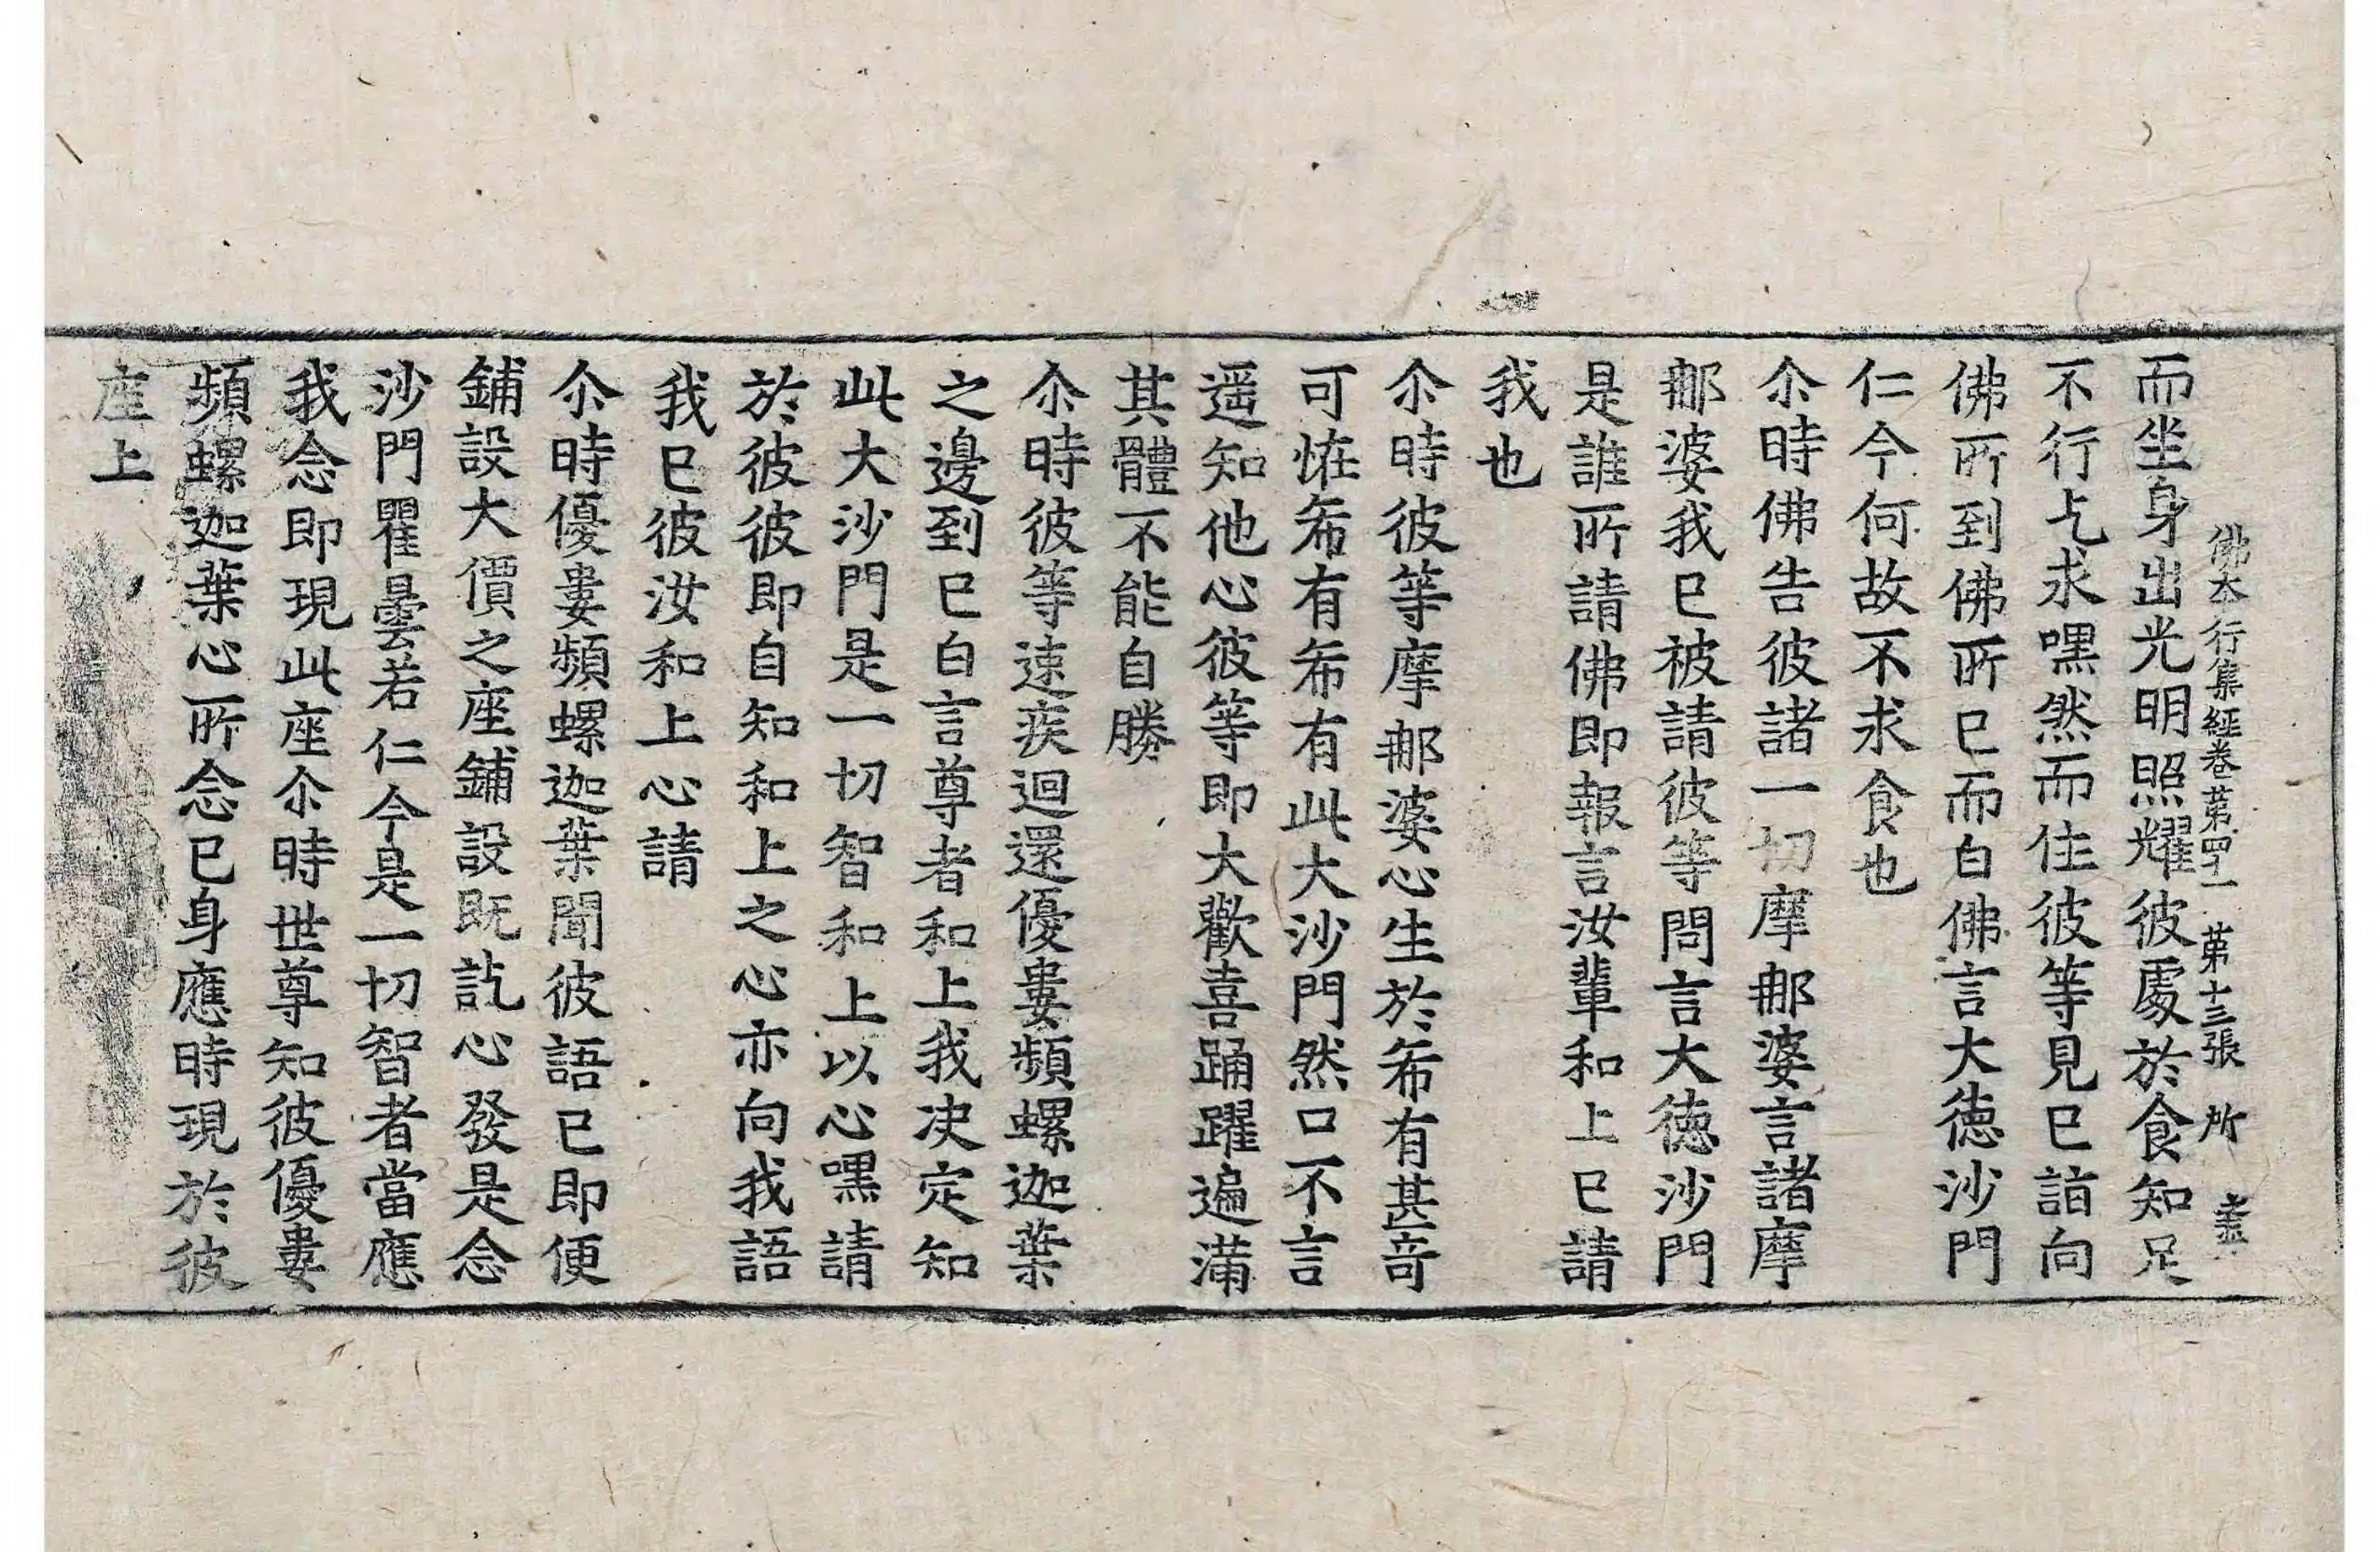 佛本行集經卷苐四十一 苐十三張 所
而坐身出光明照耀彼處於食知足
不行乞求嘿然而住彼等見已詣向
佛所到佛所已而白佛言大德沙門
仁今何故不求食也
尒時佛告彼諸一切摩那婆言諸摩
那婆我已被請彼等問言大德沙門
是誰所請佛即報言汝輩和上已請
我也
尒時彼等摩那婆心生於希有甚竒
可恠希有希有此大沙門然口不言
遥知他心彼等即大歡喜踊躍遍滿
其體不能自勝
尒時彼等速疾迴還優婁頻螺迦葉
之邊到已白言尊者和上我决定知
此大沙門是一切智和上以心嘿請
於彼彼即自知和上之心亦向我語
我已彼汝和上心請
尒時優婁頻螺迦葉聞彼語已即便
鋪設大價之座鋪設既訖心發是念
沙門瞿曇若仁今是一切智者當應
我念即現此座尒時世尊知彼優婁
頻螺迦葉心所念已身應時現於彼
座上